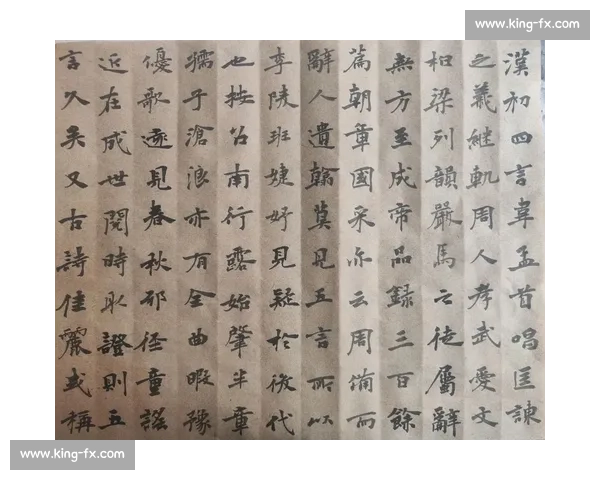 www.king-fx.com
漢初四言韋孟首唱匡諫
之義継軌周人孝武愛文
柏梁列韻嚴馬之徒屬辭
無方至成帝品録三百餘
萹朝章國采亦云周備而
辭人遺翰莫見五言所以
李陵班婕妤見疑於後代
也按召南行露始肇半章
孺子滄浪亦有全曲暇豫
優歌遠見春秋邪徑童謠
近在成世閱時取證則五
言久矣又古詩佳麗或稱
www.king-fx.com